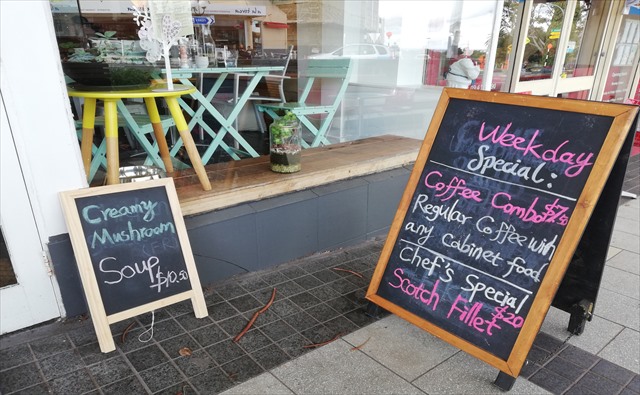 Creamy
Mushroom
Soup
$10.50
Weekday
Special:
Coffee Combo $7.50
Regular Coffee with
any Cabinet food
Chef's Special
Scotch Fillet $20